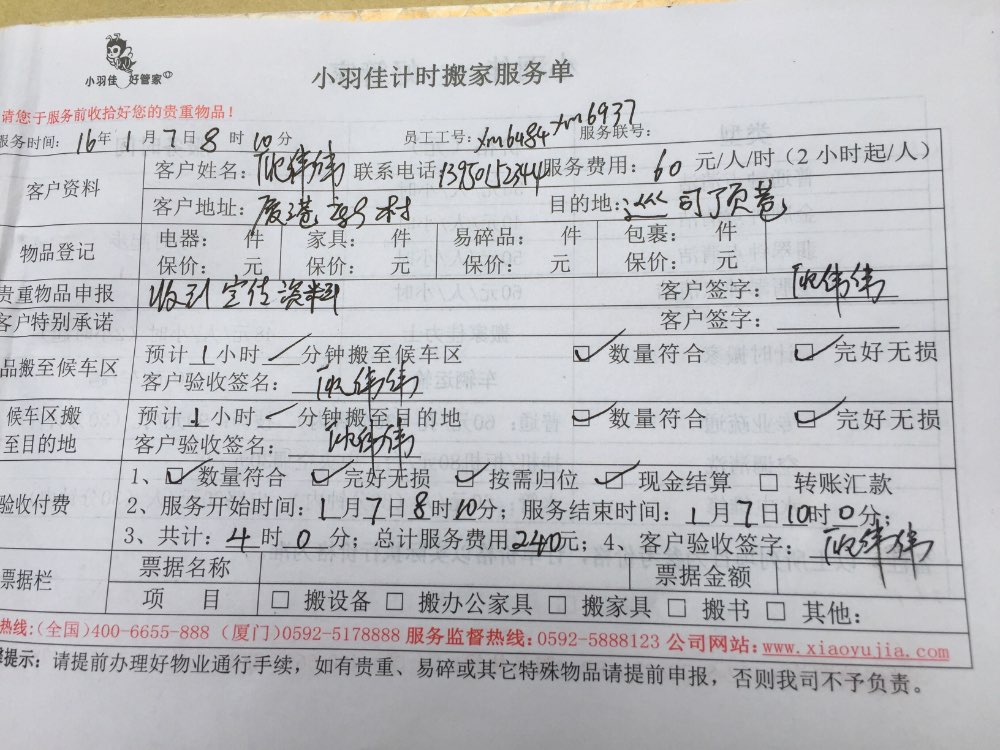 小羽佳 好管家
小羽佳计时搬家服务单
请您于服务前收拾好您的贵重物品！
服务时间: 16年1月7日8时10分 员工工号: xm6484 xm6937 服务联号:
客户资料 客户姓名: 联系电话: 服务费用: 60 元/人/时（2小时起/人）
客户地址: 村 目的地: 司顶巷
物品登记 电器: 件 家具: 件 易碎品: 件 包裹: 件
保价: 元 保价: 元 保价: 元 保价: 元
贵重物品申报 收到宣传资料 客户签字:
客户特别承诺 客户签字:
品搬至候车区 预计1小时 分钟搬至候车区 ☑ 数量符合 ☑ 完好无损
客户验收签名:
候车区搬至目的地 预计1小时 分钟搬至目的地 ☑ 数量符合 ☑ 完好无损
客户验收签名:
验收付费 1、☑ 数量符合 ☑ 完好无损 ☑ 按需归位 ☑ 现金结算 □ 转账汇款
2、服务开始时间: 1月7日8时10分; 服务结束时间: 1月7日10时0分;
3、共计: 4时0分; 总计服务费用240元; 4、客户验收签字:
票据栏 票据名称 票据金额
项 目 □ 搬设备 □ 搬办公家具 □ 搬家具 □ 搬书 □ 其他:
热线:(全国)400-6655-888 (厦门)0592-5178888 服务监督热线:0592-5888123 公司网站:www.xiaoyujia.com
提示: 请提前办理好物业通行手续，如有贵重、易碎或其它特殊物品请提前申报，否则我司不予负责。